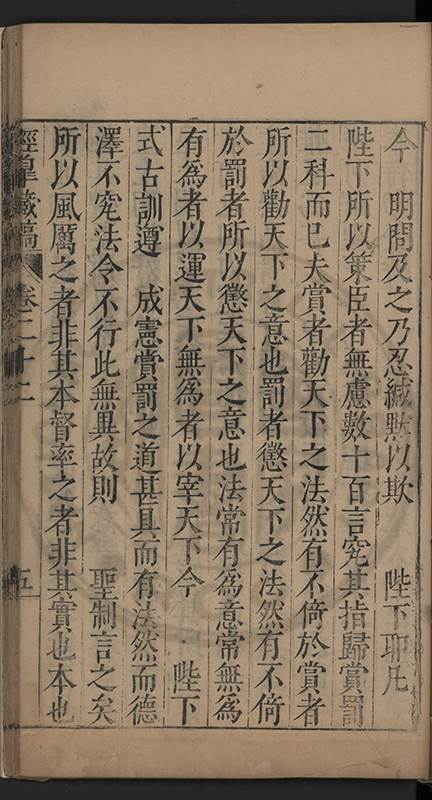 今　明問及之乃忍緘黙以欺　陛下耶凡
陛下所以策臣者無慮數十百言究其指歸賞罰
二科而已夫賞者勸天下之法然有不倚於賞者
所以勸天下之意也罰者懲天下之法然有不倚
於罰者所以懲天下之意也法常有為意常無為
有為者以運天下無為者以宰天下今　陛下
式古訓遵　成憲賞罰之道甚具而有法然而德
澤不究法令不行此無異故則　聖制言之矣
所以風厲之者非其本督率之者非其實也本也
涇臯藏稿　卷二十二　五